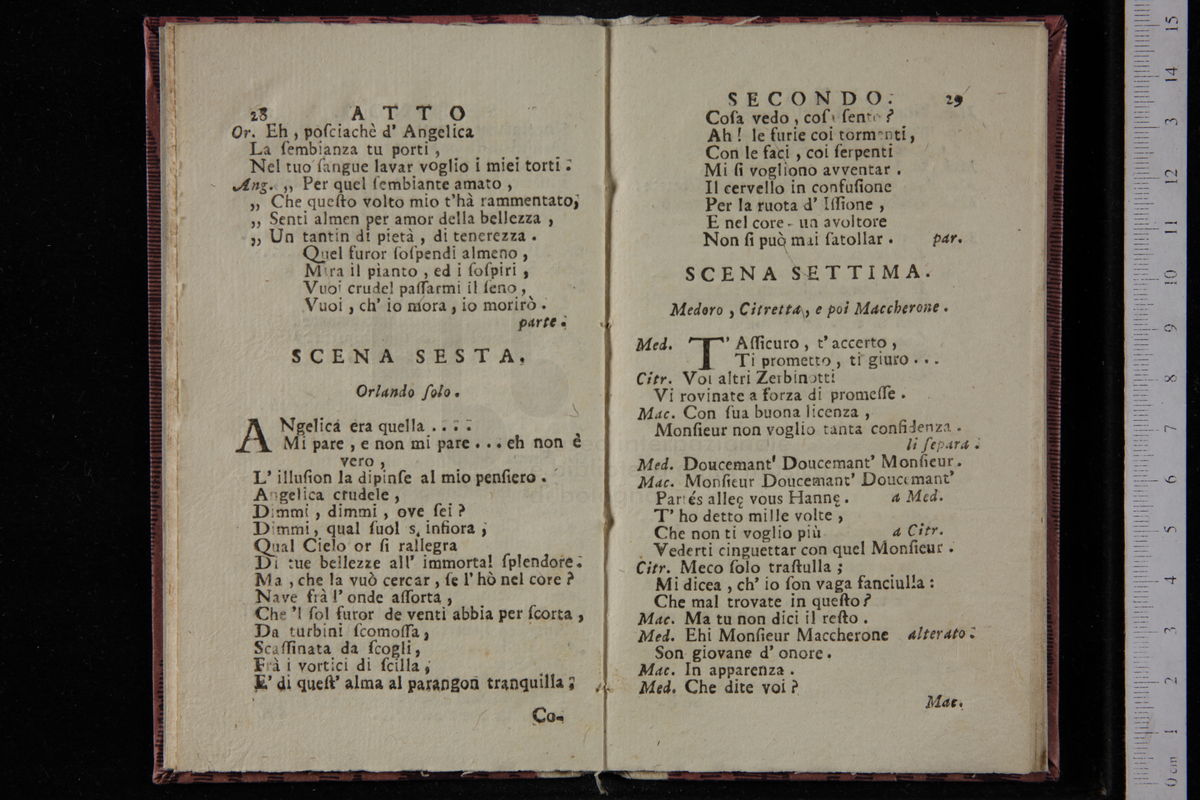 28 ATTO
Or. Eh , poſciachè d' Angelica
La ſembianza tu porti ,
Nel tuo ſangue lavar voglio i miei torti .
Ang. „ Per quel ſembiante amato ,
„ Che queſto volto mio t'hà rammentato,
„ Senti almen per amor della bellezza ,
„ Un tantin di pietà , di tenerezza .
Quel furor ſoſpendi almeno ,
Mira il pianto , ed i ſoſpiri ,
Vuoi crudel paſſarmi il ſeno ,
Vuoi , ch' io mora , io morirò .
parte .
SCENA SESTA.
Orlando ſolo .
ANgelica era quella . . . .
Mi pare , e non mi pare . . . eh non è
vero ,
L' illuſion la dipinſe al mio penſiero .
Angelica crudele ,
Dimmi , dimmi , ove ſei ?
Dimmi , qual ſuol s, infiora ,
Qual Cielo or ſi rallegra
Di tue bellezze all' immortal ſplendore .
Ma , che la vuò cercar , ſe l' hò nel core ?
Nave frà l' onde aſſorta ,
Che 'l ſol furor de venti abbia per ſcorta ,
Da turbini ſcomoſſa ,
Scaſſinata da ſcogli ,
Frà i vortici di ſcilla ,
E' di queſt' alma al paragon tranquilla ;
Co-
SECONDO. 29
Coſa vedo , coſa ſento ?
Ah ! le furie coi tormenti ,
Con le faci , coi ſerpenti
Mi ſi vogliono avventar .
Il cervello in confuſione
Per la ruota d' Iſſione ,
E nel core - un avoltore
Non ſi può mai ſatollar . par.
SCENA SETTIMA.
Medoro , Citretta , e poi Maccherone .
Med. T' Aſſicuro , t' accerto ,
Ti prometto , ti giuro . . .
Citr. Voi altri Zerbinotti
Vi rovinate a forza di promeſſe .
Mac. Con ſua buona licenza ,
Monſieur non voglio tanta confidenza .
li ſepara .
Med. Doucemant' Doucemant' Monſieur .
Mac. Monſieur Doucemant' Doucemant'
Partés alleç vous Hannç . a Med.
T' ho detto mille volte ,
Che non ti voglio più a Citr.
Vederti cinguettar con quel Monſieur .
Citr. Meco ſolo traſtulla ;
Mi dicea , ch' io ſon vaga fanciulla :
Che mal trovate in queſto ?
Mac. Ma tu non dici il reſto .
Med. Ehi Monſieur Maccherone alterato .
Son giovane d' onore .
Mac. In apparenza .
Med. Che dite voi ?
Mac.
0 cm 1 2 3 4 5 6 7 8 9 10 11 12 13 14 15